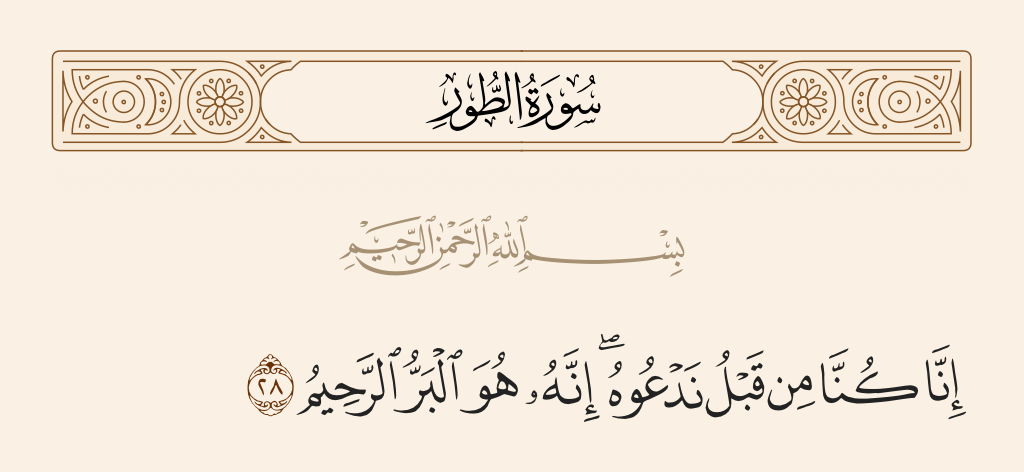 سُورَةُ الطُّورِ
بِسْمِ ٱللَّهِ ٱلرَّحْمَٰنِ ٱلرَّحِيمِ
إِنَّا كُنَّا مِن قَبْلُ نَدْعُوهُ ۖ إِنَّهُۥ هُوَ ٱلْبَرُّ ٱلرَّحِيمُ ٢٨